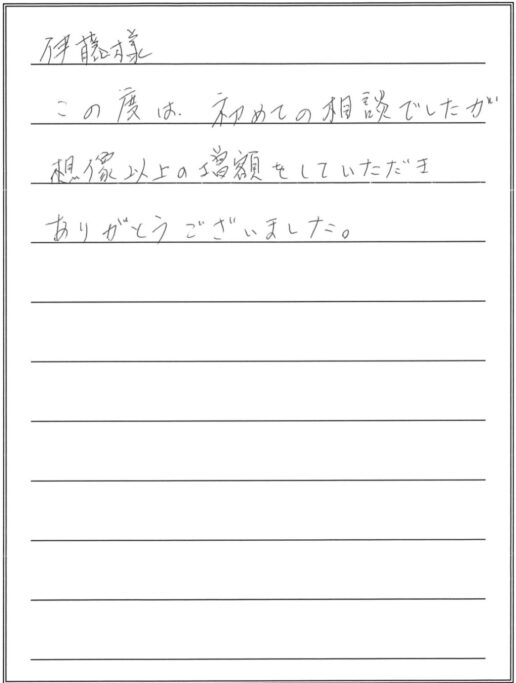 伊藤様
この度は、初めての相談でしたが
想像以上の増額をしていただき
ありがとうございました。